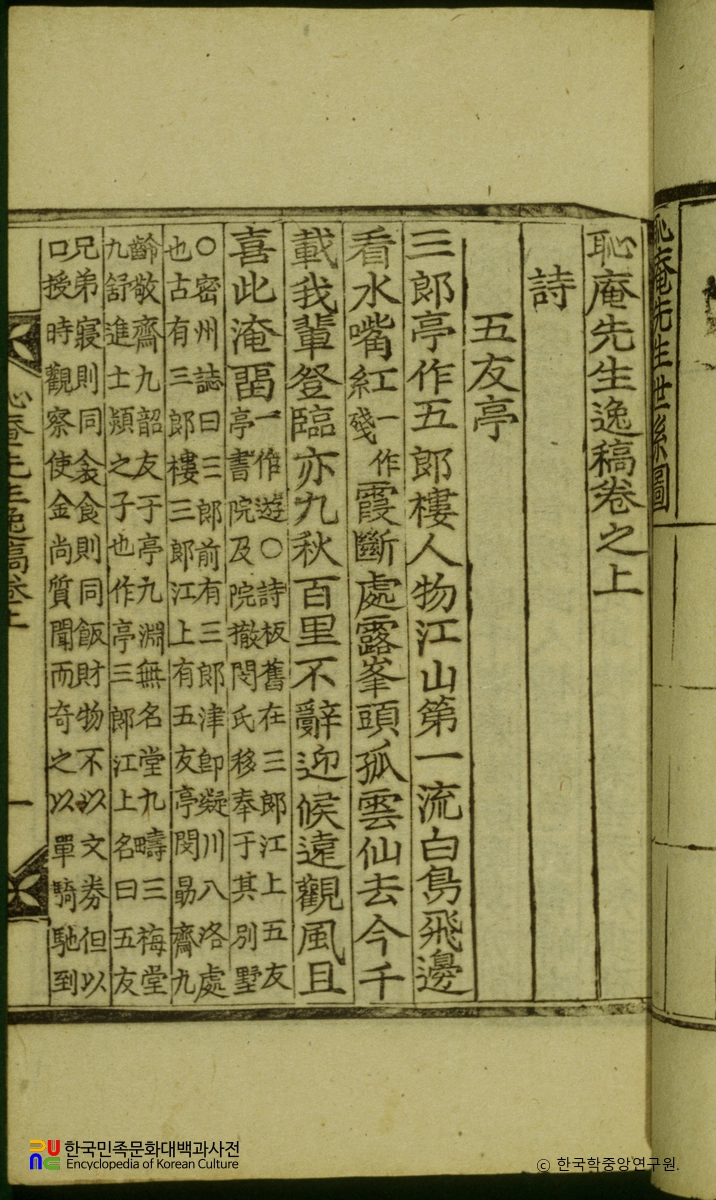 恥庵先生世系圖
恥庵先生逸稿卷之上
詩
五友亭
三郎亭作五郎樓人物江山第一流白鳥飛邊
看水嘴紅一作殘霞斷處露峯頭孤雲仙去今千
載我輩登臨亦九秋百里不辭迎候遠觀風且
喜此淹畱一作遊○詩板舊在三郎江上五友
亭書院及院撤閔氏移奉于其別墅
○密州誌曰三郎前有三郎津卽凝川八洛處
也古有三郎樓三郎江上有五友亭閔勗齋九
齡敬齋九韶友于亭九淵無名堂九疇三梅堂
九舒進士熲之子也作亭三郎江上名曰五友
兄弟寢則同衾食則同飯財物不以文券但以
口授時觀察使金尚質聞而奇之以單騎馳到
恥庵先生逸稿卷上 一
한국민족문화대백과사전
Encyclopedia of Korean Culture
© 한국학중앙연구원.